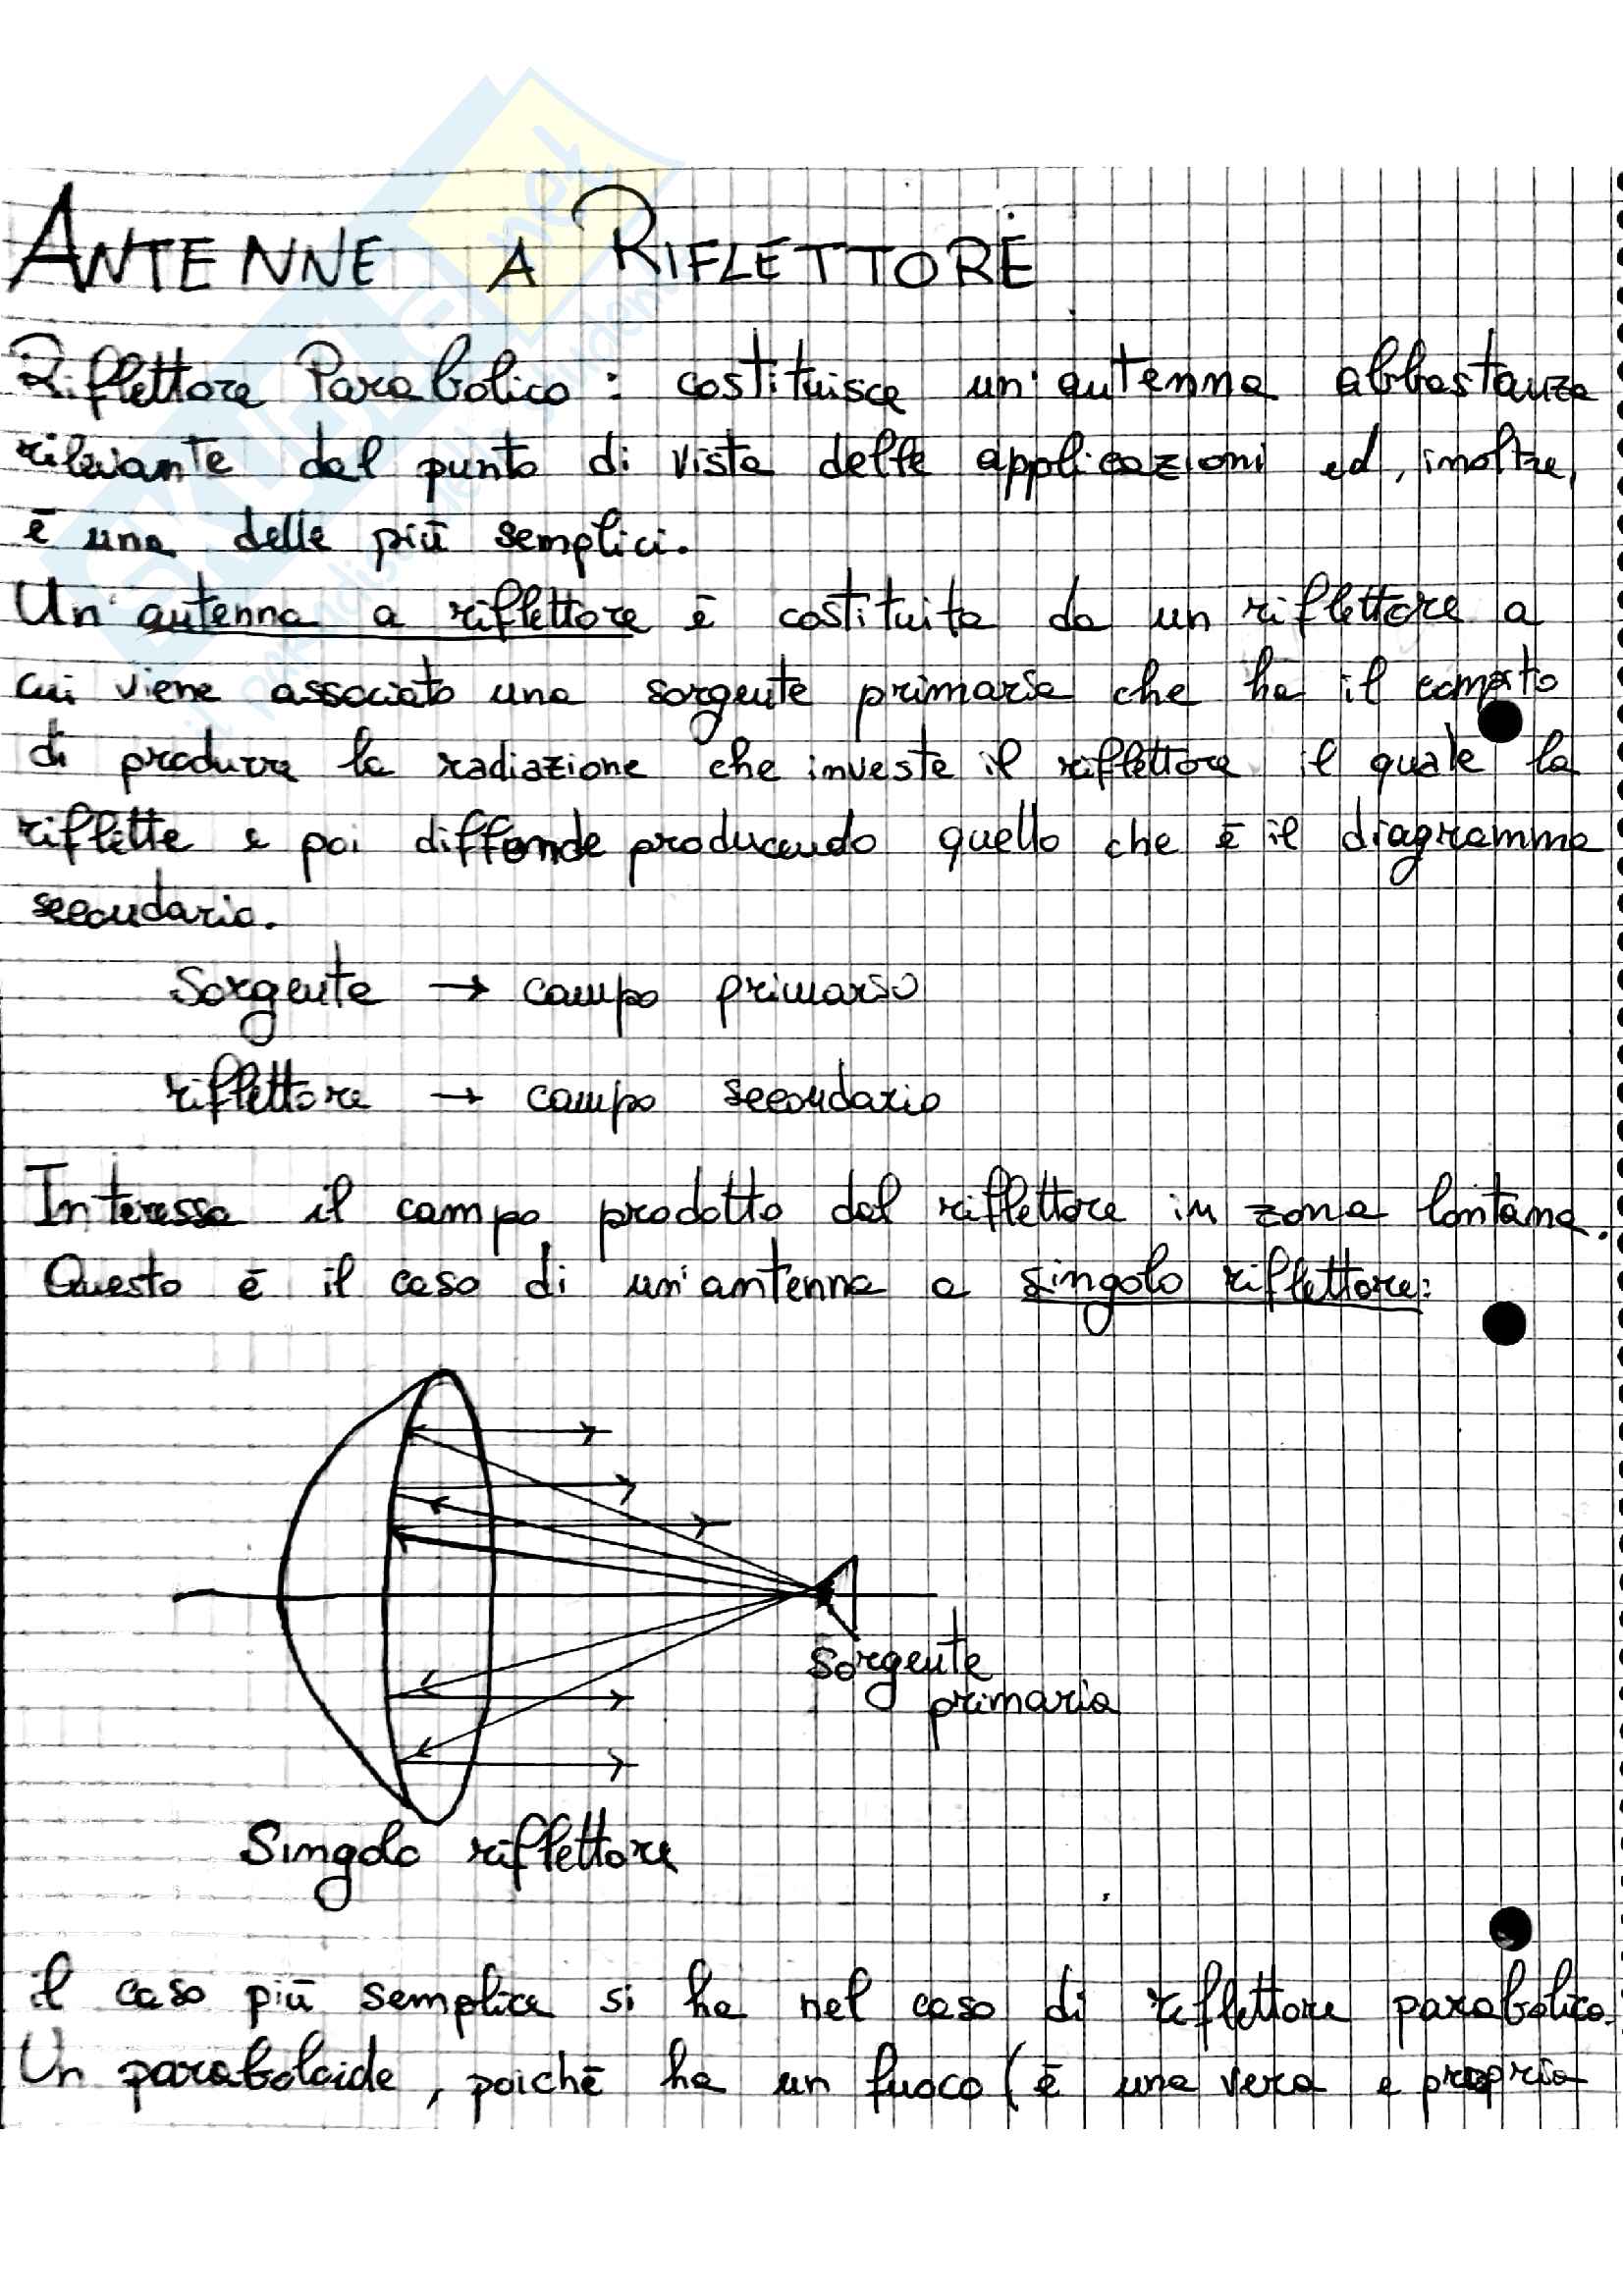 ANTENNE A RIFLETTORE
Riflettore Parabolico : costituisce un'antenna abbastanza
rilevante dal punto di vista delle applicazioni ed, inoltre,
è una delle più semplici.
Un'antenna a riflettore è costituita da un riflettore a
cui viene associato una sorgente primaria che ha il compito
di produrre la radiazione che investe il riflettore il quale la
riflette e poi diffonde producendo quello che è il diagramma
secondario.
Sorgente → campo primario
riflettore → campo secondario
Interessa il campo prodotto dal riflettore in zona lontana.
Questo è il caso di un'antenna a singolo riflettore:
Sorgente
primaria
Singolo riflettore
il caso più semplice si ha nel caso di riflettore parabolico.
Un paraboloide, poichè ha un fuoco (è una vera e propria